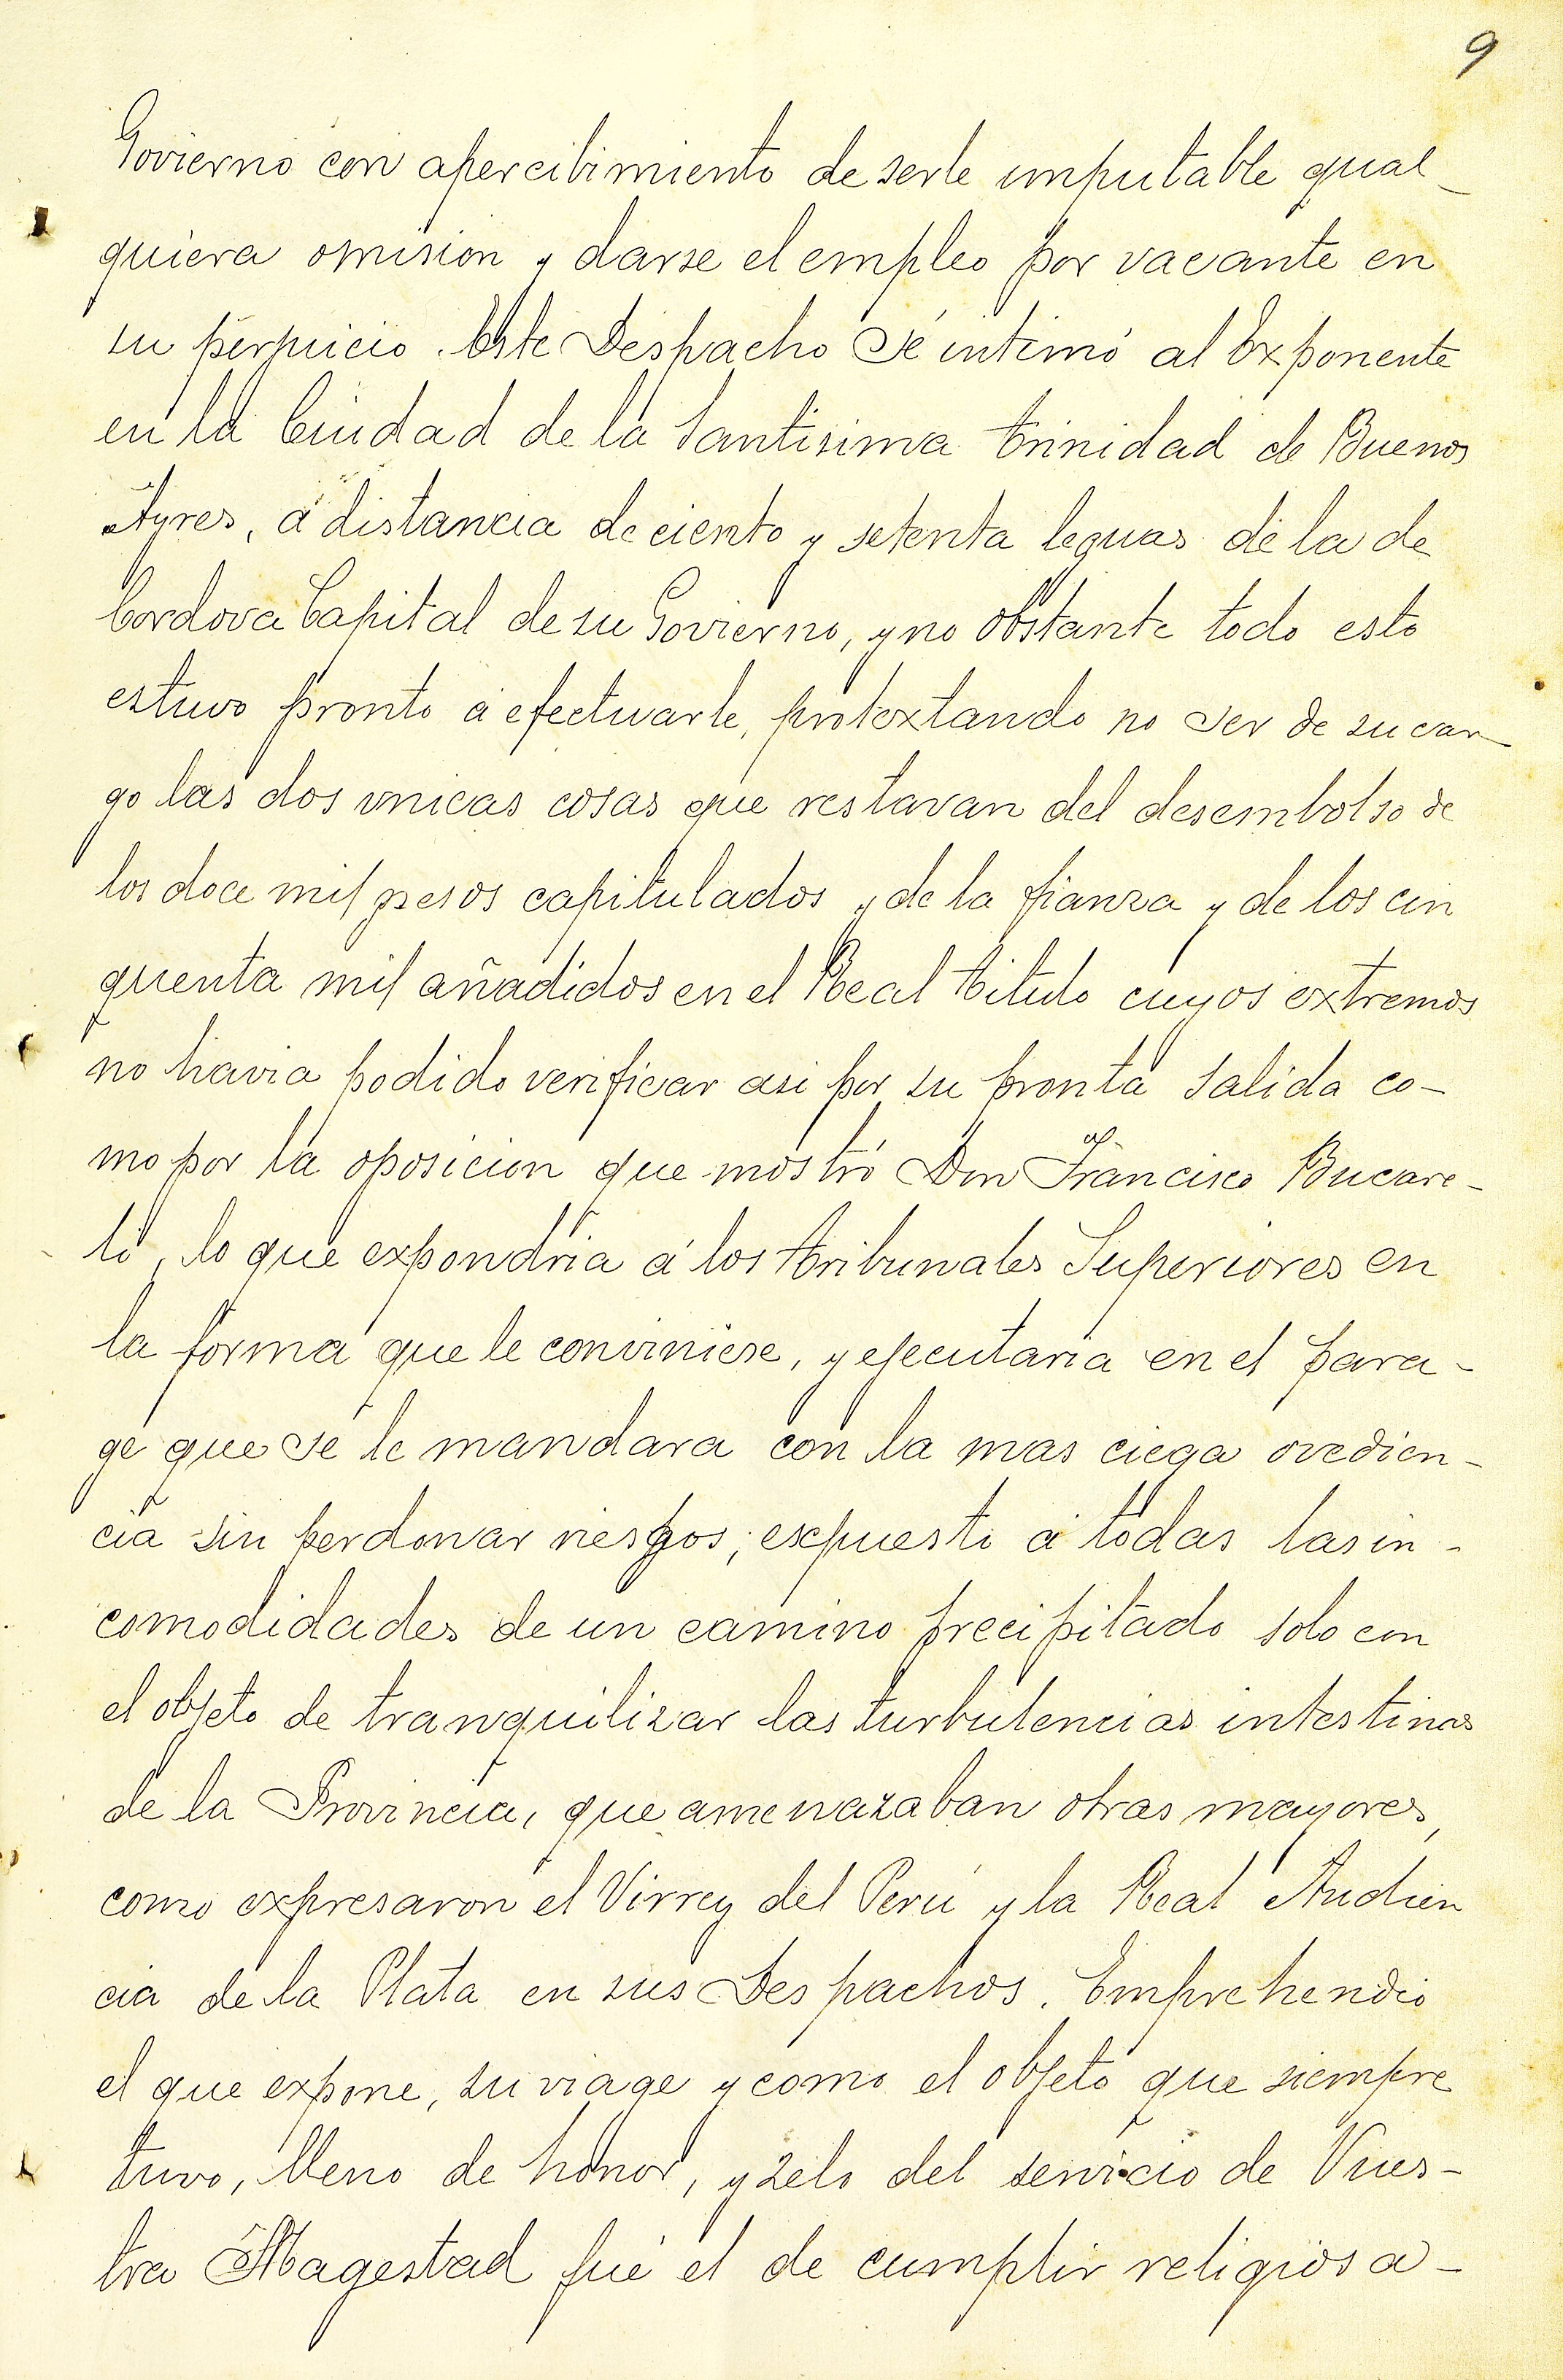 9
Govierno con apercibimiento de serle imputable qual-
quiera omision y darse el empleo por vacante en
su perjuicio. Este Despacho se intimó al Exponente
en la Ciudad de la Santisima Trinidad de Buenos
Ayres, á distancia de ciento y setenta leguas de la de
Cordova Capital de su Govierno, y no obstante todo esto
estuvo pronto á efectuarle, protextando no ser de su car-
go las dos vnicas cosas que restavan del desembolso de
los doce mil pesos capitulados y de la fianza y de los cin
quenta mil añadidos en el Real Titulo cuyos extremos
no havia podido verificar asi por su pronta salida co-
mo por la oposicion que mostró Don Francisco Bucare-
li, lo que expondria á los Tribunales Superiores en
la forma que le conviniese, y ejecutaria en el para-
ge que se le mandara con la mas ciega ovedien-
cia sin perdonar riesgos, expuesto á todas las in-
comodidades de un camino precipitado solo con
el objeto de tranquilizar las turbulencias intestinas
de la Provincia, que amenazaban otras mayores,
como expresaron el Virrey del Perú y la Real Audien
cia de la Plata en sus Despachos. Emprehendio
el que expone, su viage y como el objeto que siempre
tuvo, lleno de honor, y zelo del servicio de Vues-
tra Magestad fué el de cumplir religiosa-